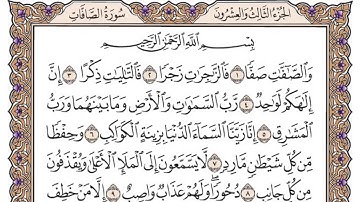 الجزء الثالث والعشرون
سورة الصافات
بِسْمِ اللَّهِ الرَّحْمَٰنِ الرَّحِيمِ
وَالصَّٰٓفَّٰتِ صَفًّا ١ فَالزَّٰجِرَٰتِ زَجْرًا ٢ فَالتَّٰلِيَٰتِ ذِكْرًا ٣ إِنَّ
إِلَٰهَكُمْ لَوَٰحِدٌ ٤ رَّبُّ السَّمَٰوَٰتِ وَالْأَرْضِ وَمَا بَيْنَهُمَا وَرَبُّ
الْمَشَٰرِقِ ٥ إِنَّا زَيَّنَّا السَّمَآءَ الدُّنْيَا بِزِينَةٍ الْكَوَاكِبِ ٦ وَحِفْظًا
مِّن كُلِّ شَيْطَٰنٍ مَّارِدٍ ٧ لَّا يَسَّمَّعُونَ إِلَى الْمَلَإِ الْأَعْلَىٰ وَيُقْذَفُونَ
مِن كُلِّ جَانِبٍ ٨ دُحُورًا وَلَهُمْ عَذَابٌ وَاصِبٌ ٩ إِلَّا مَنْ خَطِفَ